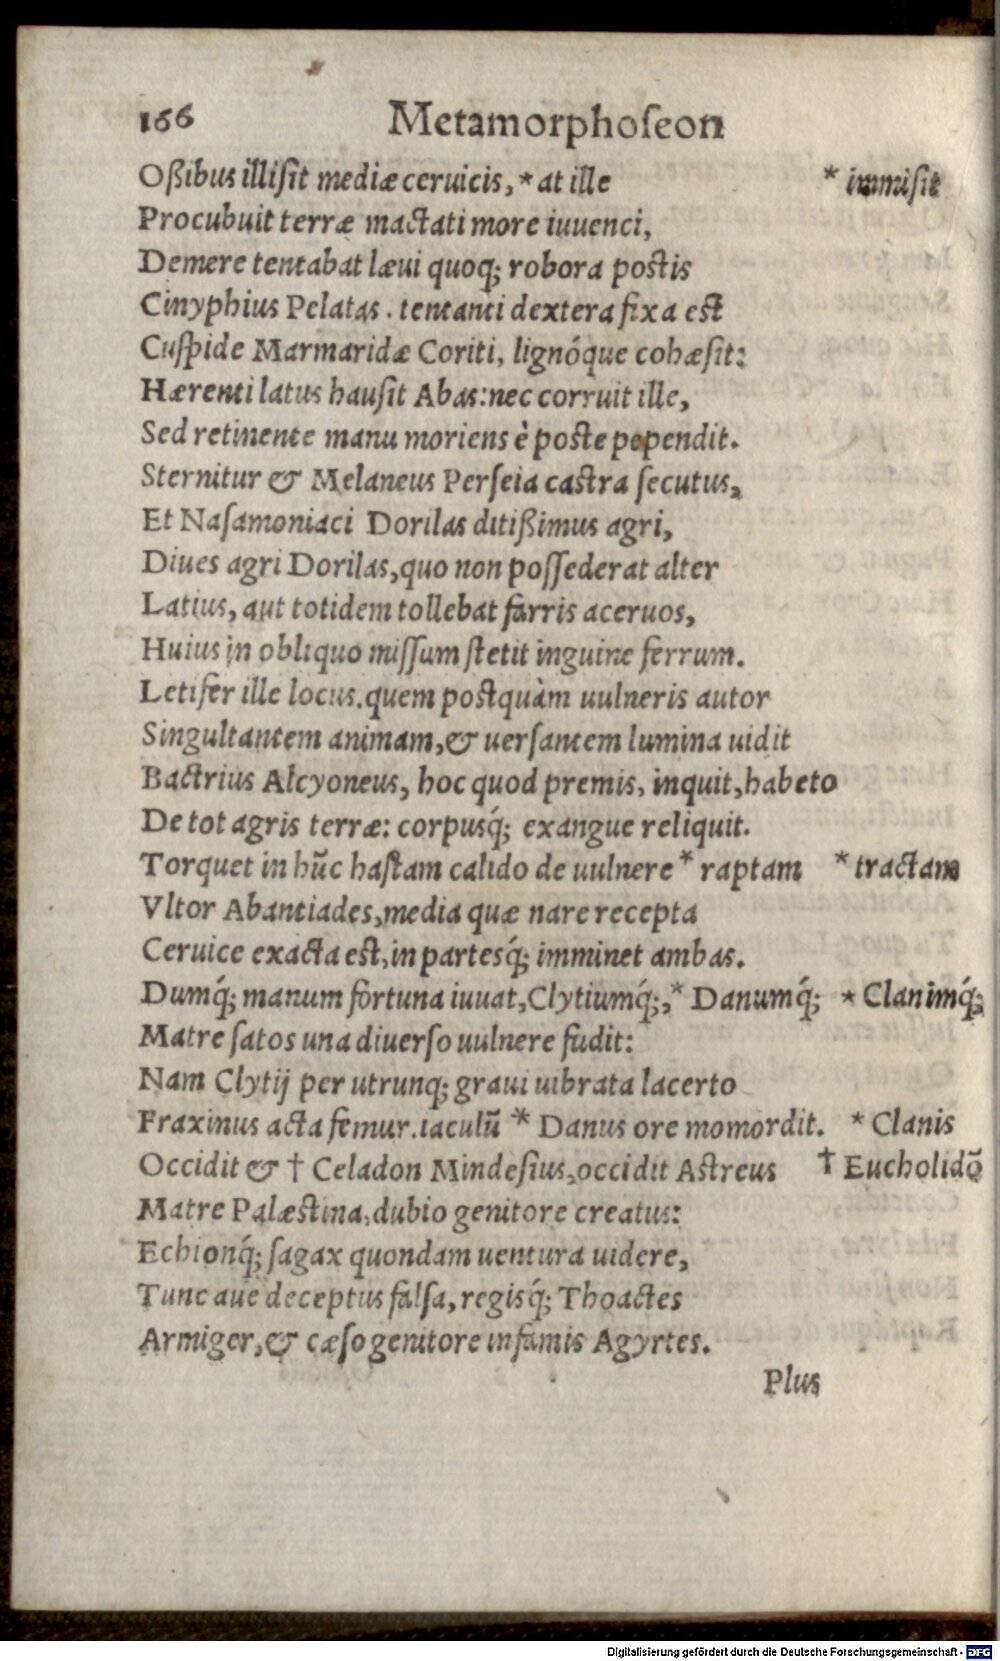 166 Metamorphoſeon
Oßibus illiſit mediæ ceruicis, * at ille * immiſit
Procubuit terræ mactati more iuuenci,
Demere tentabat læui quoq; robora postis
Cinyphius Pelatas. tentanti dextera fixa est
Cuſpide Marmaridæ Coriti, lignóque cohæſit:
Hærenti latus hauſit Abas: nec corruit ille,
Sed retinente manu moriens è poste pependit.
Sternitur & Melaneus Perſeia castra ſecutus,
Et Naſamoniaci Dorilas ditißimus agri,
Diues agri Dorilas, quo non poſſederat alter
Latius, aut totidem tollebat farris aceruos,
Huius in obliquo miſſum ſtetit inguine ferrum.
Letifer ille locus. quem postquàm uulneris autor
Singultantem animam, & uerſantem lumina uidit
Bactrius Alcyoneus, hoc quod premis, inquit, habeto
De tot agris terræ: corpusq́; exangue reliquit.
Torquet in hūc haſtam calido de uulnere * raptam * tractam
Vltor Abantiades, media quæ nare recepta
Ceruice exacta est, in partesq́; imminet ambas.
Dumq́; manum fortuna iuuat, Clytiumq́;, * Danumq́; * Clanimq́;
Matre ſatos una diuerſo uulnere fudit:
Nam Clytij per utrunq; graui uibrata lacerto
Fraxinus acta femur. iaculū * Danus ore momordit. * Clanis
Occidit & † Celadon Mindeſius, occidit Astreus † Eucholidō
Matre Palæstina, dubio genitore creatus:
Echionq́; ſagax quondam uentura uidere,
Tunc aue deceptus falſa, regisq́; Thoactes
Armiger, & cæſo genitore infamis Agyrtes.
Plus
Digitalisierung gefördert durch die Deutsche Forschungsgemeinschaft - DFG